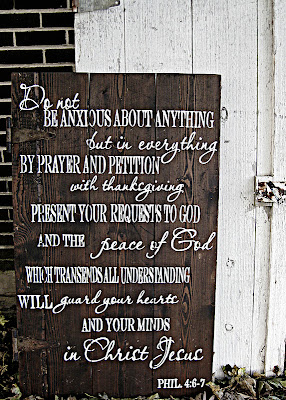 Do not
BE ANXIOUS ABOUT ANYTHING
but in everything
BY PRAYER AND PETITION
with thanksgiving
PRESENT YOUR REQUESTS TO GOD
AND THE peace of God
WHICH TRANSENDS ALL UNDERSTANDING
WILL guard your hearts
AND YOUR MINDS
in Christ Jesus
PHIL. 4:6-7